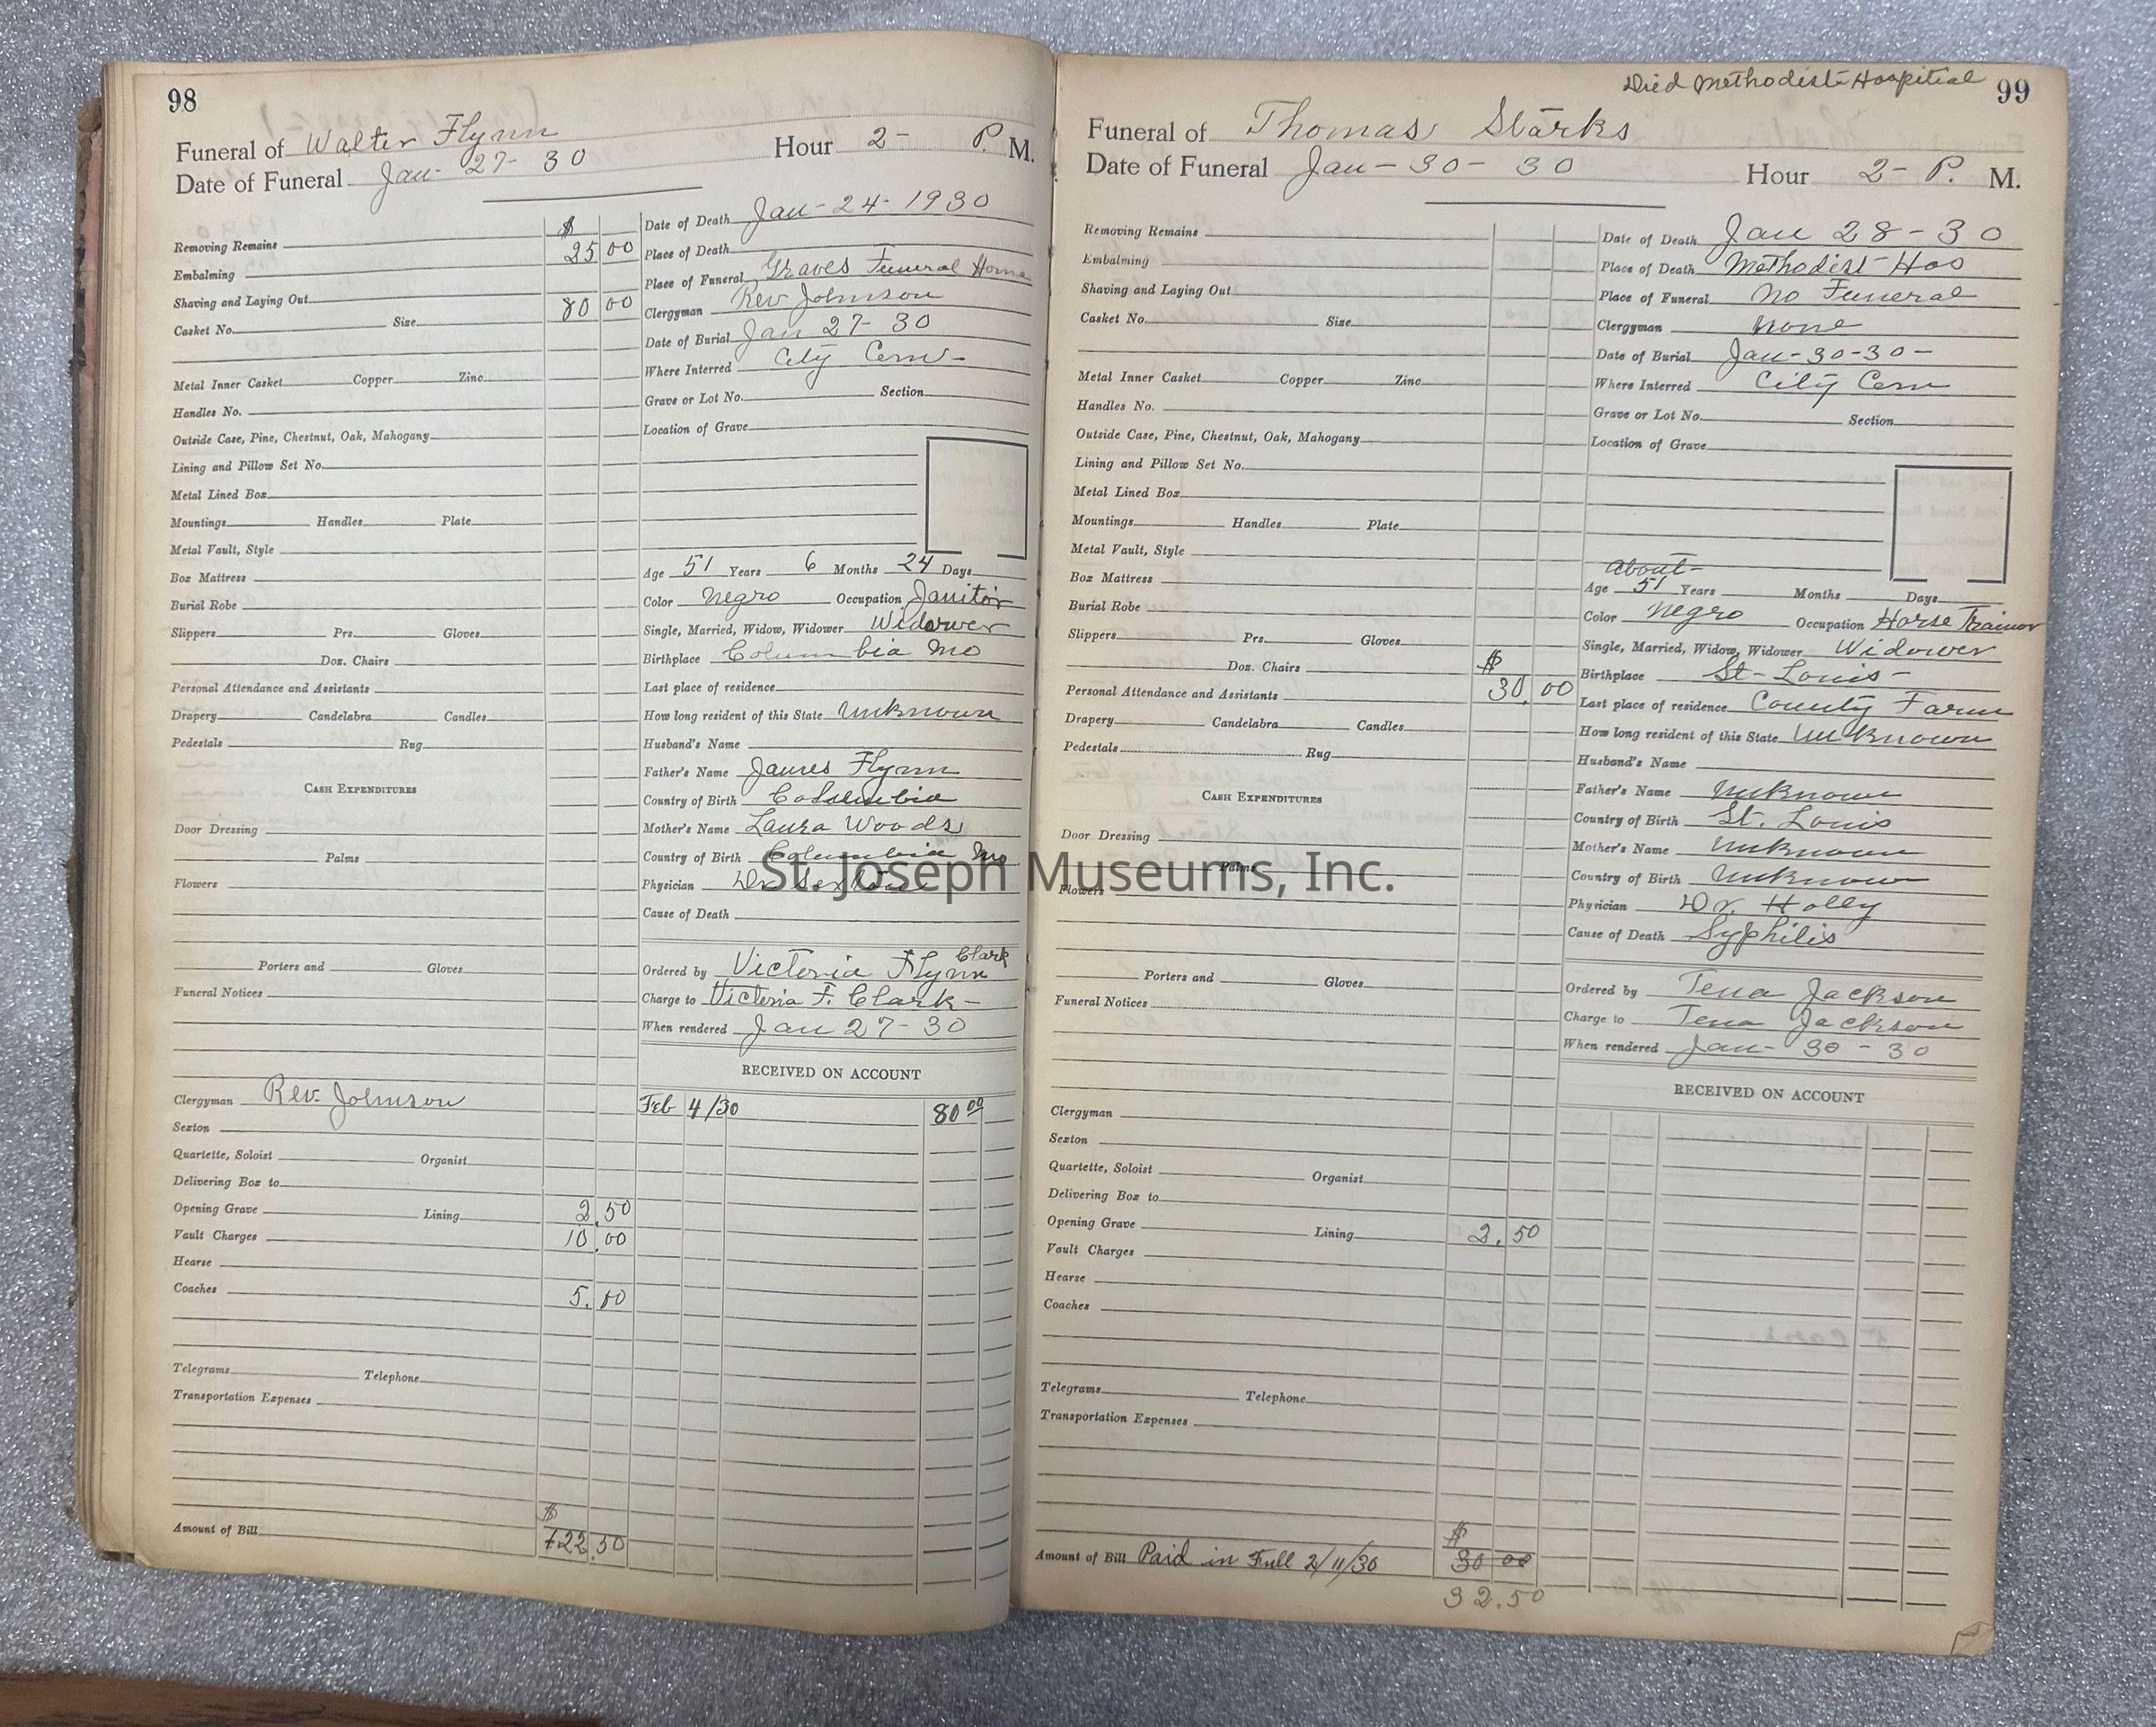 98
Funeral of Walter Flynn Hour 2- P. M.
Date of Funeral Jan- 27- 30
Removing Remains $
Embalming 25 00
Shaving and Laying Out
Casket No. Size 80 00
Metal Inner Casket Copper Zinc
Handles No.
Outside Case, Pine, Chestnut, Oak, Mahogany
Lining and Pillow Set No.
Metal Lined Box
Mountings Handles Plate
Metal Vault, Style
Box Mattress
Burial Robe
Slippers Prs. Gloves
Doz. Chairs
Personal Attendance and Assistants
Drapery Candelabra Candles
Pedestals Rug
CASH EXPENDITURES
Door Dressing
Palms
Flowers
Porters and Gloves
Funeral Notices
Clergyman Rev. Johnson
Sexton
Quartette, Soloist Organist
Delivering Box to
Opening Grave Lining 2.50
Vault Charges 10.00
Hearse
Coaches 5.00
Telegrams Telephone
Transportation Expenses
Amount of Bill $ 122.50
Date of Death Jan-24-1930
Place of Death
Place of Funeral Graves Funeral Home
Clergyman Rev Johnson
Date of Burial Jan 27- 30
Where Interred City Cem-
Grave or Lot No. Section
Location of Grave
Age 51 Years 6 Months 24 Days
Color Negro Occupation Janitor
Single, Married, Widow, Widower Widower
Birthplace Columbia Mo
Last place of residence
How long resident of this State Unknown
Husband's Name
Father's Name James Flynn
Country of Birth Columbia
Mother's Name Laura Woods
Country of Birth Columbia Mo
Physician Dr
Cause of Death
Ordered by Victoria Flynn Clark
Charge to Victoria F. Clark-
When rendered Jan 27-30
RECEIVED ON ACCOUNT
Feb 4/30 80 00
Died Methodist Hospitial 99
Funeral of Thomas Starks
Date of Funeral Jan-30- 30 Hour 2- P. M.
Removing Remains
Embalming
Shaving and Laying Out
Casket No. Size
Metal Inner Casket Copper Zinc
Handles No.
Outside Case, Pine, Chestnut, Oak, Mahogany
Lining and Pillow Set No.
Metal Lined Box
Mountings Handles Plate
Metal Vault, Style
Box Mattress
Burial Robe
Slippers Prs. Gloves
Doz. Chairs $
Personal Attendance and Assistants 30.00
Drapery Candelabra Candles
Pedestals Rug
CASH EXPENDITURES
Door Dressing
Palms
Flowers
Porters and Gloves
Funeral Notices
Clergyman
Sexton
Quartette, Soloist Organist
Delivering Box to
Opening Grave Lining 2.50
Vault Charges
Hearse
Coaches
Telegrams Telephone
Transportation Expenses
Amount of Bill Paid in Full 2/11/30 $ 30 00
32.50
Date of Death Jan 28-30
Place of Death Methodist Hos
Place of Funeral No Funeral
Clergyman None
Date of Burial Jan-30-30-
Where Interred City Cem
Grave or Lot No. Section
Location of Grave
About-
Age 51 Years Months Days
Color Negro Occupation Horse Trainor
Single, Married, Widow, Widower Widower
Birthplace St-Louis-
Last place of residence County Farm
How long resident of this State Unknown
Husband's Name
Father's Name Unknown
Country of Birth St. Louis
Mother's Name Unknown
Country of Birth Unknow
Physician Dr. Holly
Cause of Death Syphilis
Ordered by Tena Jackson
Charge to Tena Jackson
When rendered Jan- 30 - 30
RECEIVED ON ACCOUNT
St. Joseph Museums, Inc.